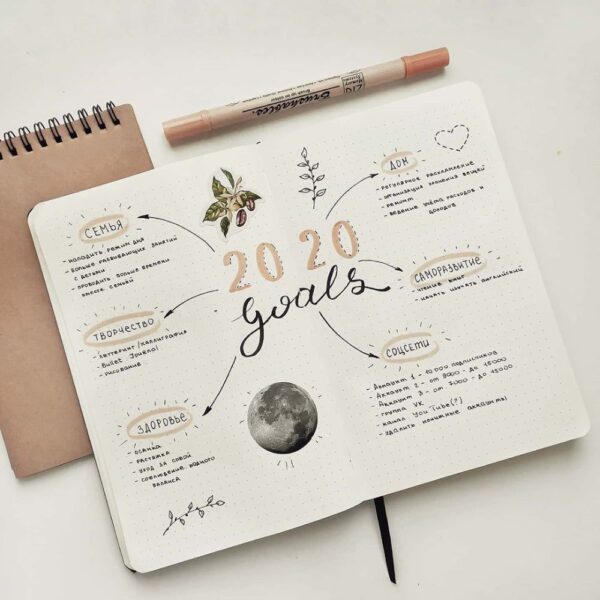 Brushables.
ZIG
Memory
System
2020
goals
СЕМЬЯ
- наладить режим дня
- больше развивающих занятий
с детьми
- проводить больше времени
вместе семьёй
ТВОРЧЕСТВО
- леттеринг/каллиграфия
- Bullet Journal
- рисование
ЗДОРОВЬЕ
- осанка
- растяжка
- уход за собой
- соблюдение водного
баланса
ДОМ
- регулярное расхламление
- организация хранения вещей
- ремонт
- ведение учёта расходов и
доходов
САМОРАЗВИТИЕ
- чтение книг
- начать изучать английский
СОЦСЕТИ
- Аккаунт 1 - 10 000 подписчиков
- Аккаунт 2 - от 9000 - до 15000
- Аккаунт 3 - от 7000 - до 15000
- группа VK
- канал You Tube(?)
- удалить ненужные аккаунты